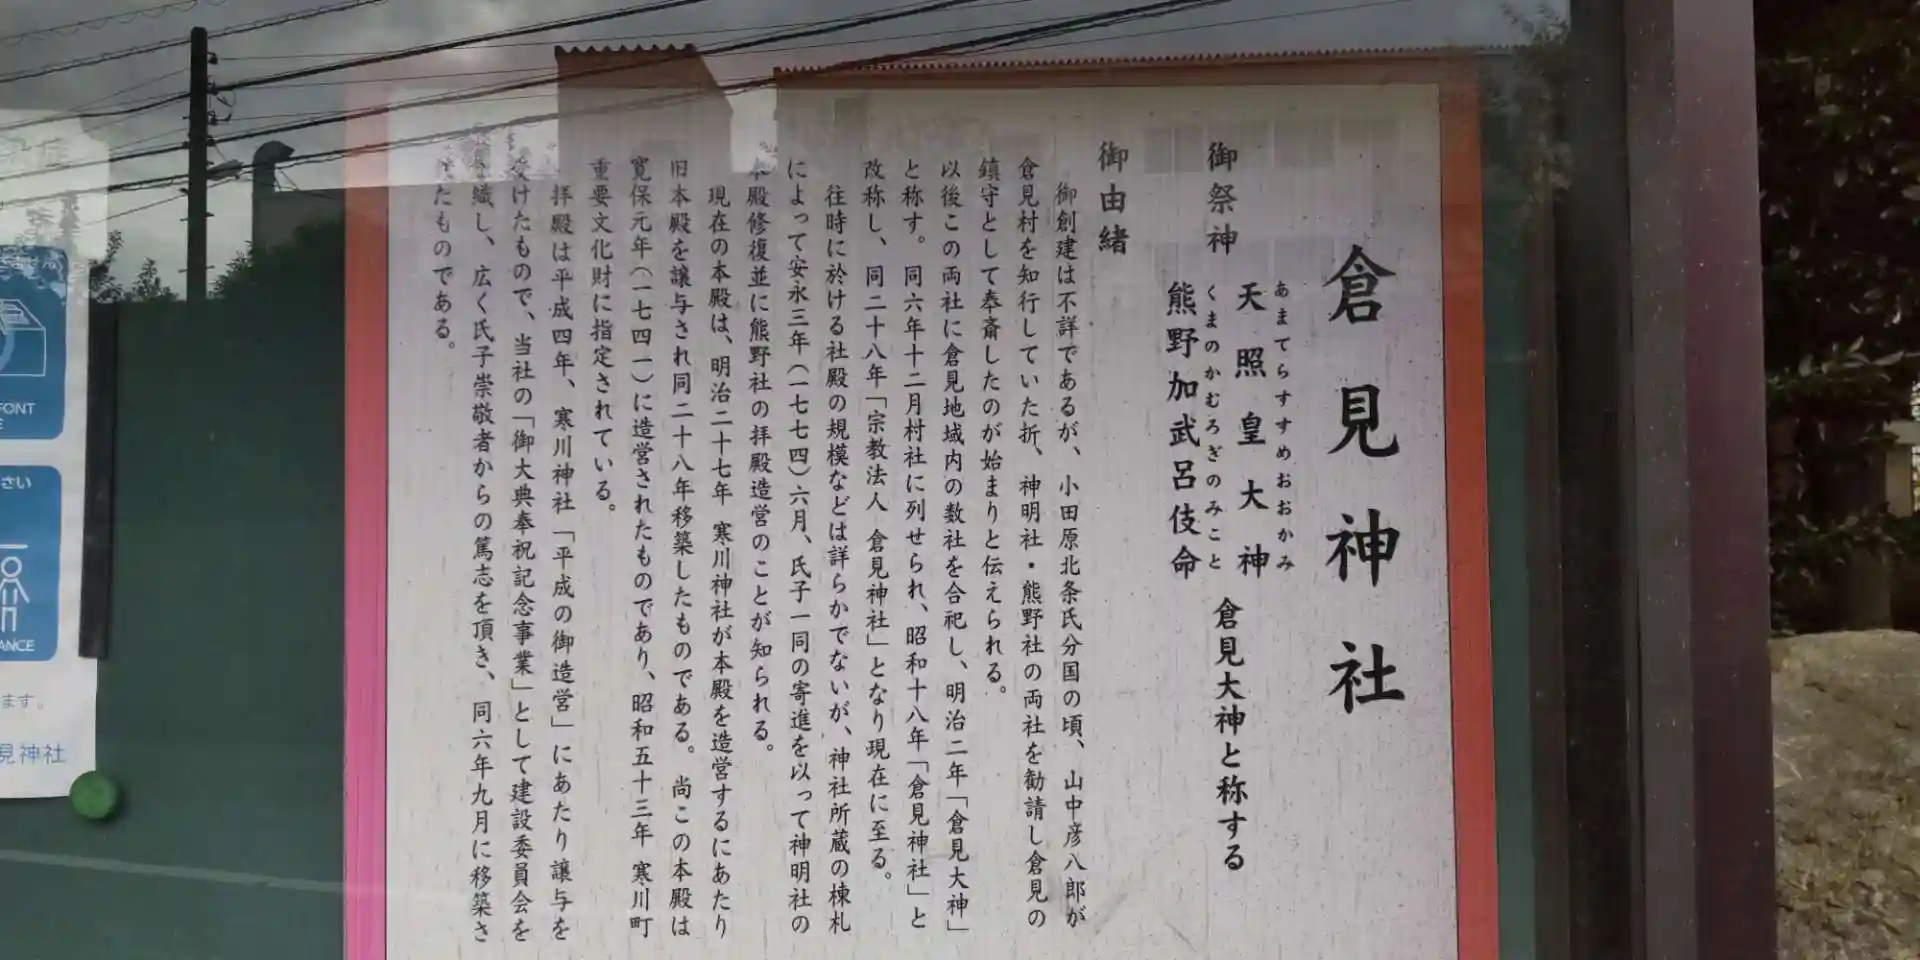 倉見神社
御祭神
あまてらすすめおおかみ
天照皇大神
くまのかむろぎのみこと
熊野加武呂伎命
倉見大神と称する
御由緒
御創建は不詳であるが、小田原北条氏分国の頃、山中彦八郎が
倉見村を知行していた折、神明社・熊野社の両社を勧請し倉見の
鎮守として奉斎したのが始まりと伝えられる。
以後この両社に倉見地域内の数社を合祀し、明治二年「倉見大神」
と称す。同六年十二月村社に列せられ、昭和十八年「倉見神社」と
改称し、同二十八年「宗教法人 倉見神社」となり現在に至る。
往時に於ける社殿の規模などは詳らかでないが、神社所蔵の棟札
によって安永三年(一七七四)六月、氏子一同の寄進を以って神明社の
本殿修復並に熊野社の拝殿造営のことが知られる。
現在の本殿は、明治二十七年 寒川神社が本殿を造営するにあたり
旧本殿を譲与され同二十八年移築したものである。尚この本殿は
寛保元年(一七四一)に造営されたものであり、昭和五十三年 寒川町
重要文化財に指定されている。
拝殿は平成四年、寒川神社「平成の御造営」にあたり譲与を
受けたもので、当社の「御大典奉祝記念事業」として建設委員会を
織し、広く氏子崇敬者からの篤志を頂き、同六年九月に移築さ
れたものである。
FONT
さい
ANCE
ます。
見神社